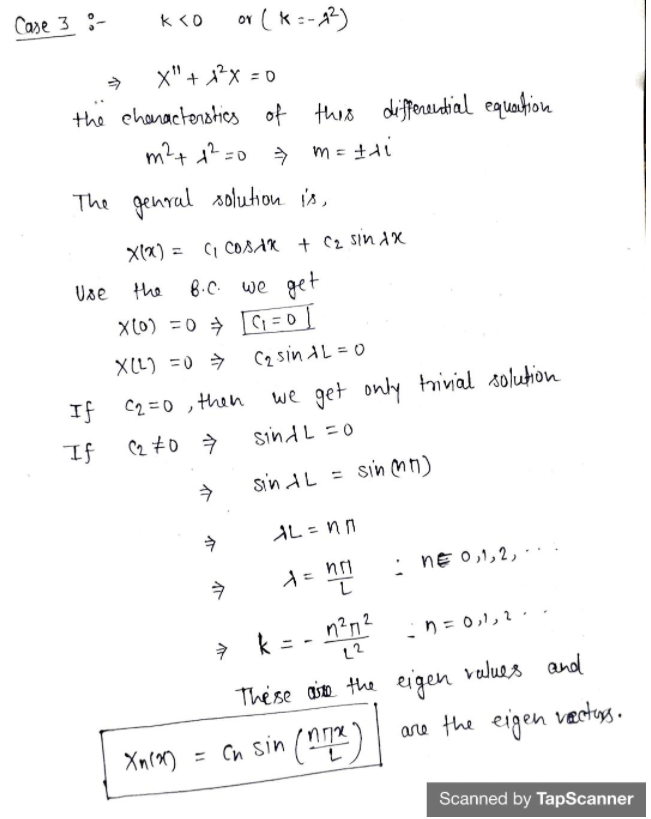 Case 3 :- k < 0 or ( k = -λ²)
⇒ X'' + λ²X = 0
the charactorstics of this differential equation
m² + λ² = 0 ⇒ m = ±λi
The genral solution is,
X(x) = C₁ cosλx + C₂ sin λx
Use the B.C. we get
X(0) = 0 ⇒ C₁ = 0
X(L) = 0 ⇒ C₂ sin λL = 0
If C₂ = 0 , then we get only trivial solution
If C₂ ≠ 0 ⇒ sin λL = 0
⇒ sin λL = sin (nπ)
⇒ λL = nπ
⇒ λ = nπ/L : n∈ 0,1,2, ...
⇒ k = - n²π²/L² : n = 0,1,2 . .
These are the eigen values and
Xn(x) = Cn sin (nπx/L) are the eigen vectors.
Scanned by TapScanner